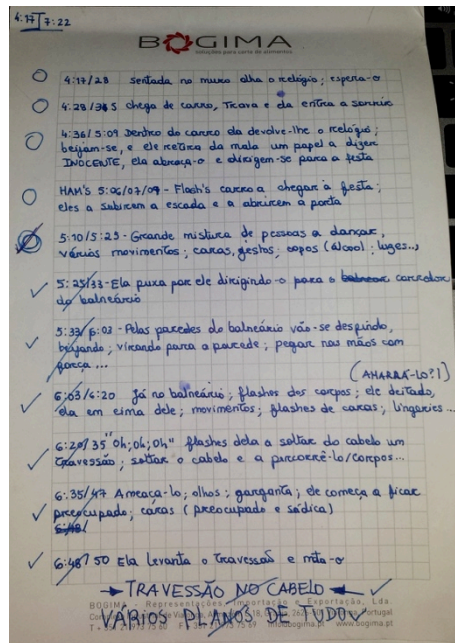 4:17 7:22
BOGIMA
soluções para corte de alimentos
4:17/28 sentada no muro olha o relógio; espera-o
4:28/ chega de carro, trava e ela entra a sorrir
4:36/5:09 Dentro do carro ela devolve-lhe o relógio;
beijam-se, e ele retira da mala um papel a dizer
INOCENTE, ela abraça-o e dirigem-se para a festa
HAM's 5:06/07/09 - Flash's carro a chegar à festa;
eles a subirem a escada e a abrirem a porta
5:10/5:25 - Grande mistura de pessoas a dançar,
vários movimentos; caras, gestos; copos (álcool; luzes...
5:25/33 - Ela puxa por ele dirigindo-o para o balnear corredor
do balneário
5:33/6:03 - Pelas paredes do balneário vão-se despindo,
beijando; virando para a parede; pegar nas mãos com
força...
(AMARRÁ-LO?!)
6:03/6:20 já no balneário; flashes dos corpos; ele deitado,
ela em cima dele; movimentos; flashes de caras; lingeries...
6:20/35 "Oh; Oh; Oh" flashes dela a soltar do cabelo um
travessão; soltar o cabelo e a percorrê-lo/corpos...
6:35/47 Ameaça-lo; olhos; garganta; ele começa a ficar
preocupado; caras (preocupado e sádica)
6:48/
6:48/50 Ela levanta o travessão e mata-o
TRAVESSÃO NO CABELO
BOGIMA - Representações, Importação e Exportação, Lda
VÁRIOS PLANOS DE TUDO
Portugal
www.bogima.pt